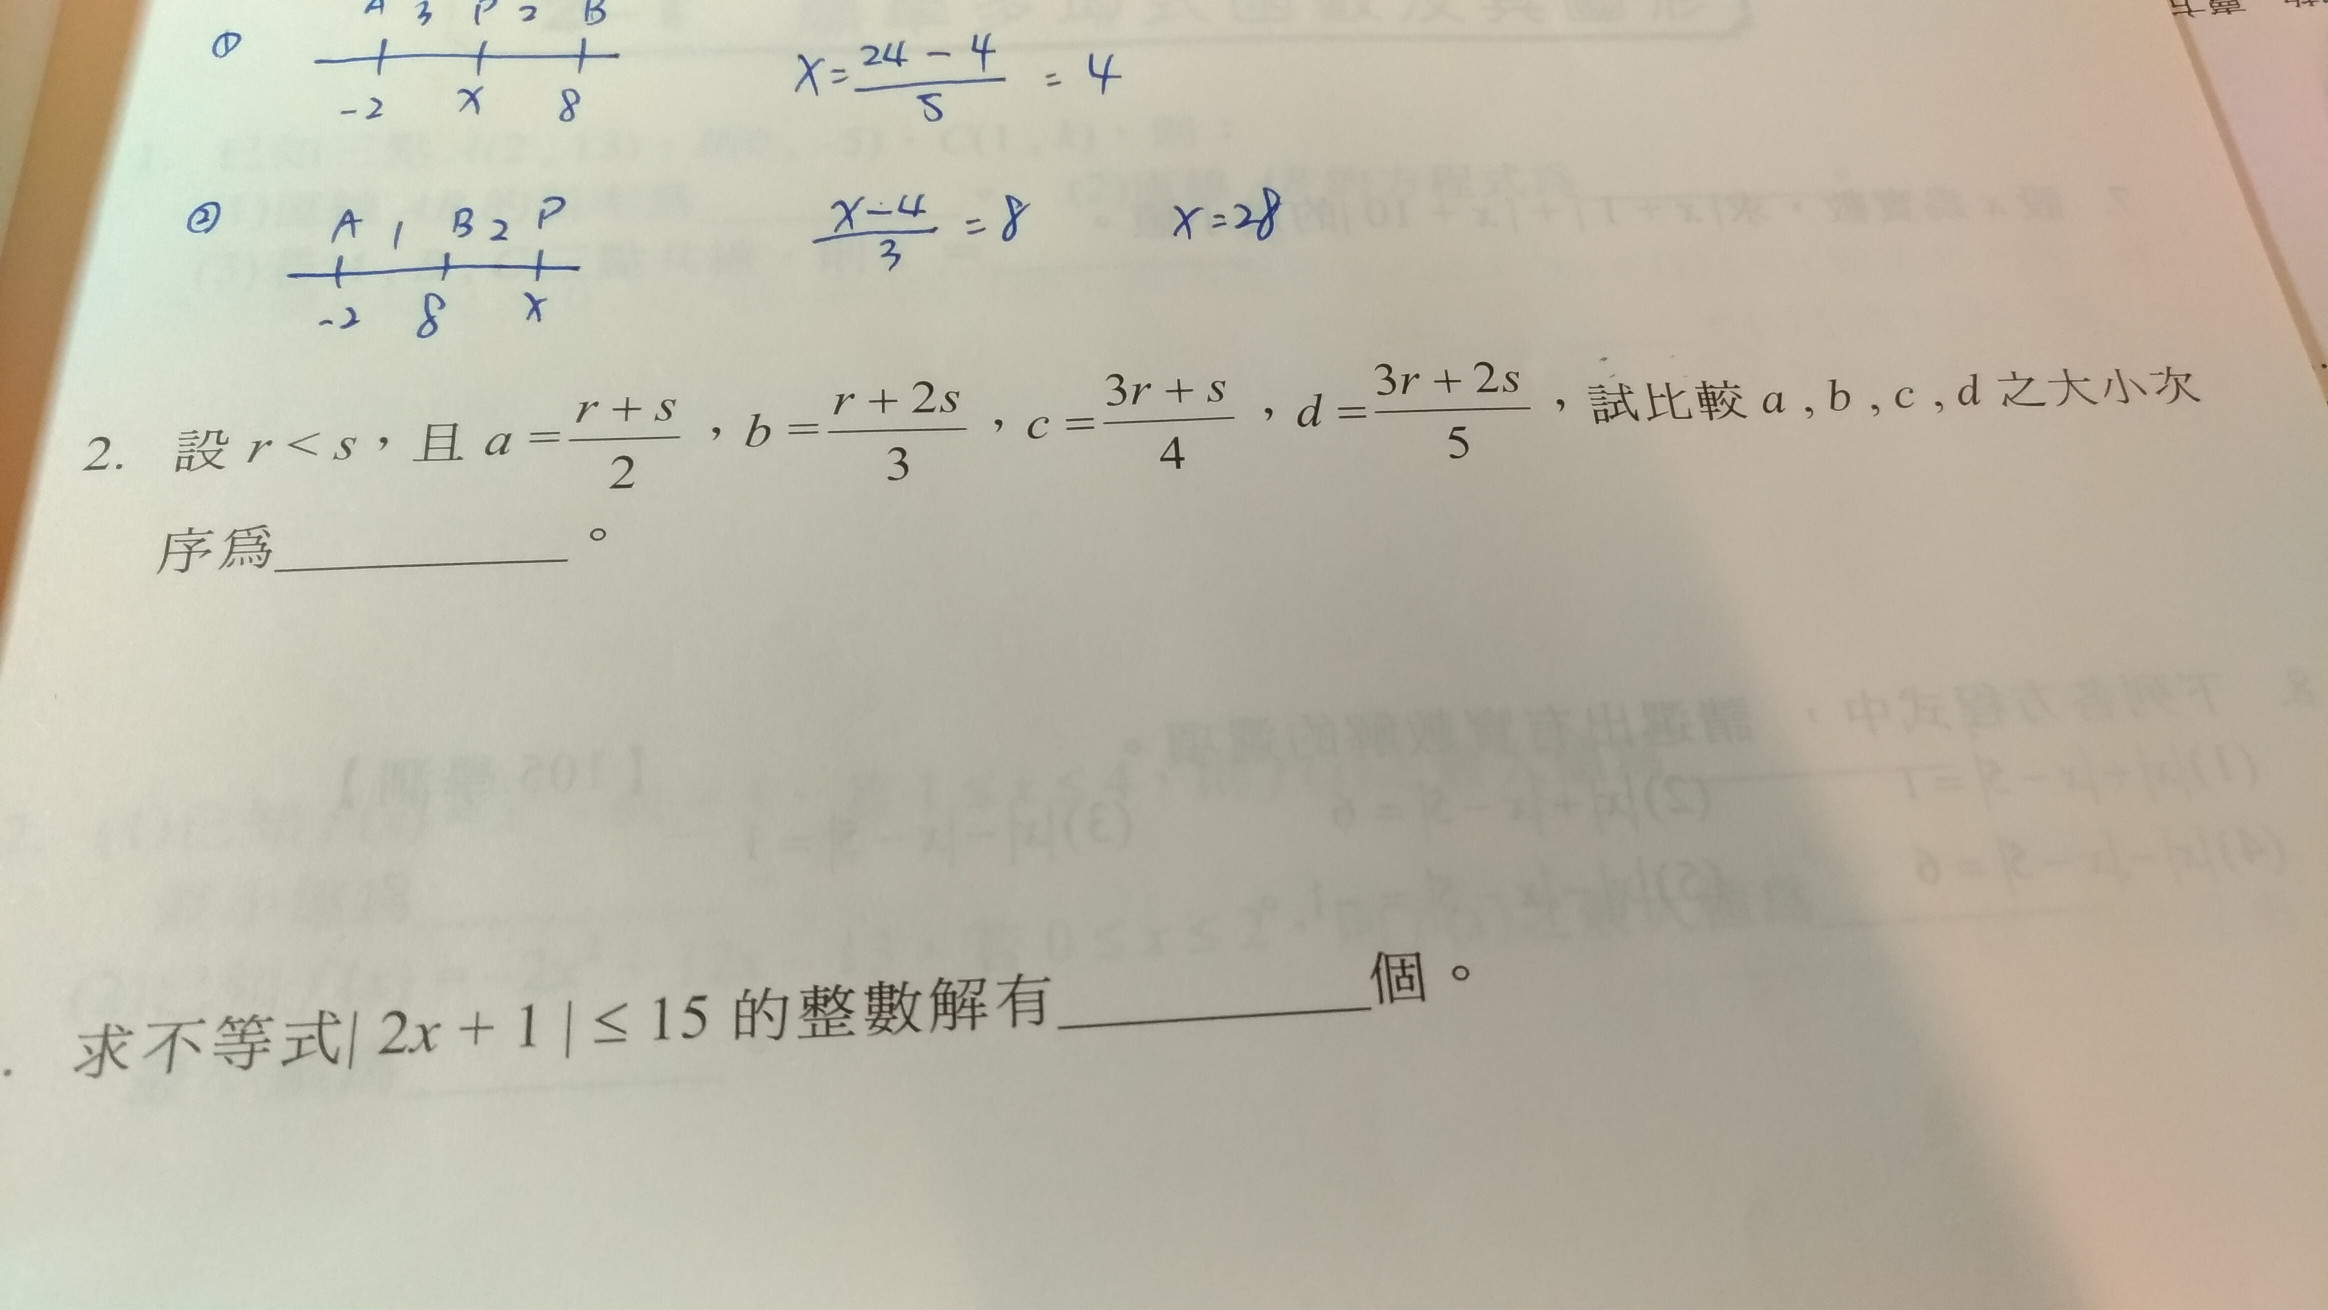 ① A 3 P 2 B
-2 x 8
x = \frac{24-4}{5} = 4
② A 1 B 2 P
-2 8 x
\frac{x-4}{3} = 8 x=28
2. 設 r < s，且 a = \frac{r+s}{2}，b = \frac{r+2s}{3}，c = \frac{3r+s}{4}，d = \frac{3r+2s}{5}，試比較 a , b , c , d 之大小次
序為__________。
. 求不等式| 2x + 1 | ≤ 15 的整數解有__________個。